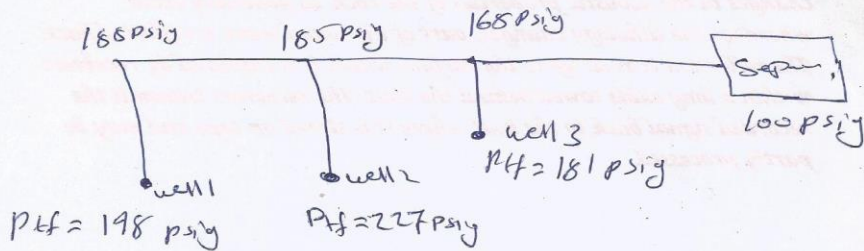 188 psig
185 psig
168 psig
Separ.
100 psig
well 1
Ptf = 198 psig
well 2
Ptf = 227 psig
well 3
Ptf = 181 psig